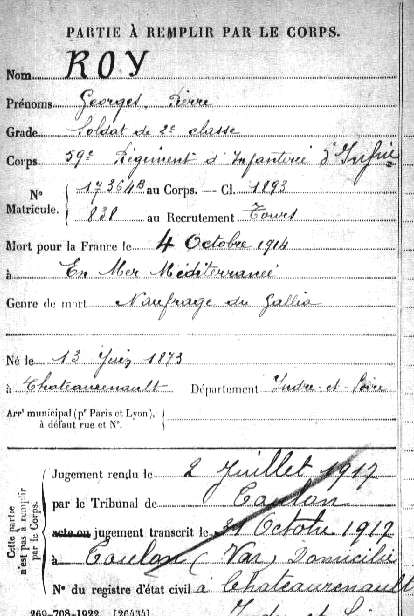 PARTIE À REMPLIR PAR LE CORPS.
Nom ROY
Prénoms Georges, Pierre
Grade Soldat de 2e classe
Corps 59e Régiment d'Infanterie
No Matricule. 17364B au Corps. — Cl. 1893
838 au Recrutement Tours
Mort pour la France le 4 Octobre 1914
à En Mer Méditerranée
Genre de mort Naufrage du Gallia
Né le 13 Juin 1873
à Chateaurenault Département Indre-et-Loire
Arrt municipal (pr Paris et Lyon),
à défaut rue et No.
Cette partie n'est pas à remplir par le Corps.
Jugement rendu le 2 Juillet 1917
par le Tribunal de Toulon
acte ou jugement transcrit le 21 Octobre 1917
à Toulon (Var) Domicilié
No du registre d'état civil à Chateaurenault
269-708-1922. [26434]